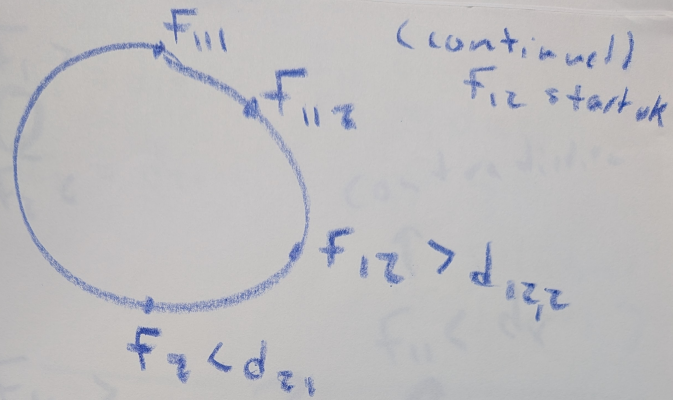 F111
(continued)
F12 start ok
F112
F12 > d12,2
F2 < d21